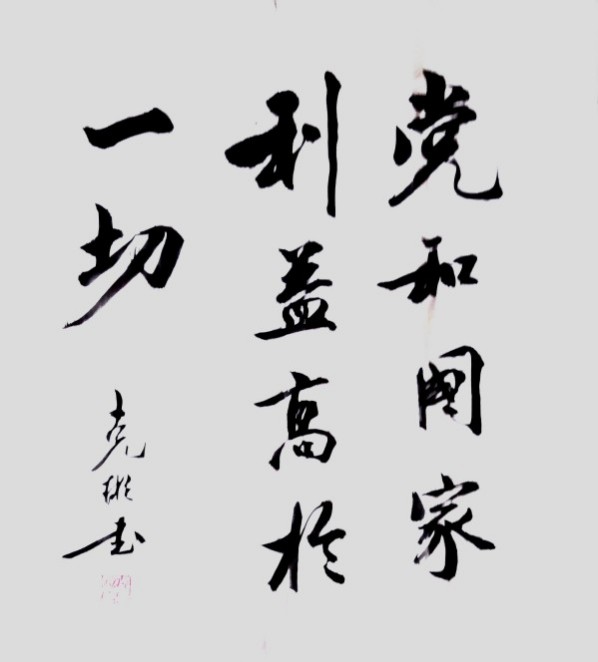 党和国家
利益高於
一切
克彬书